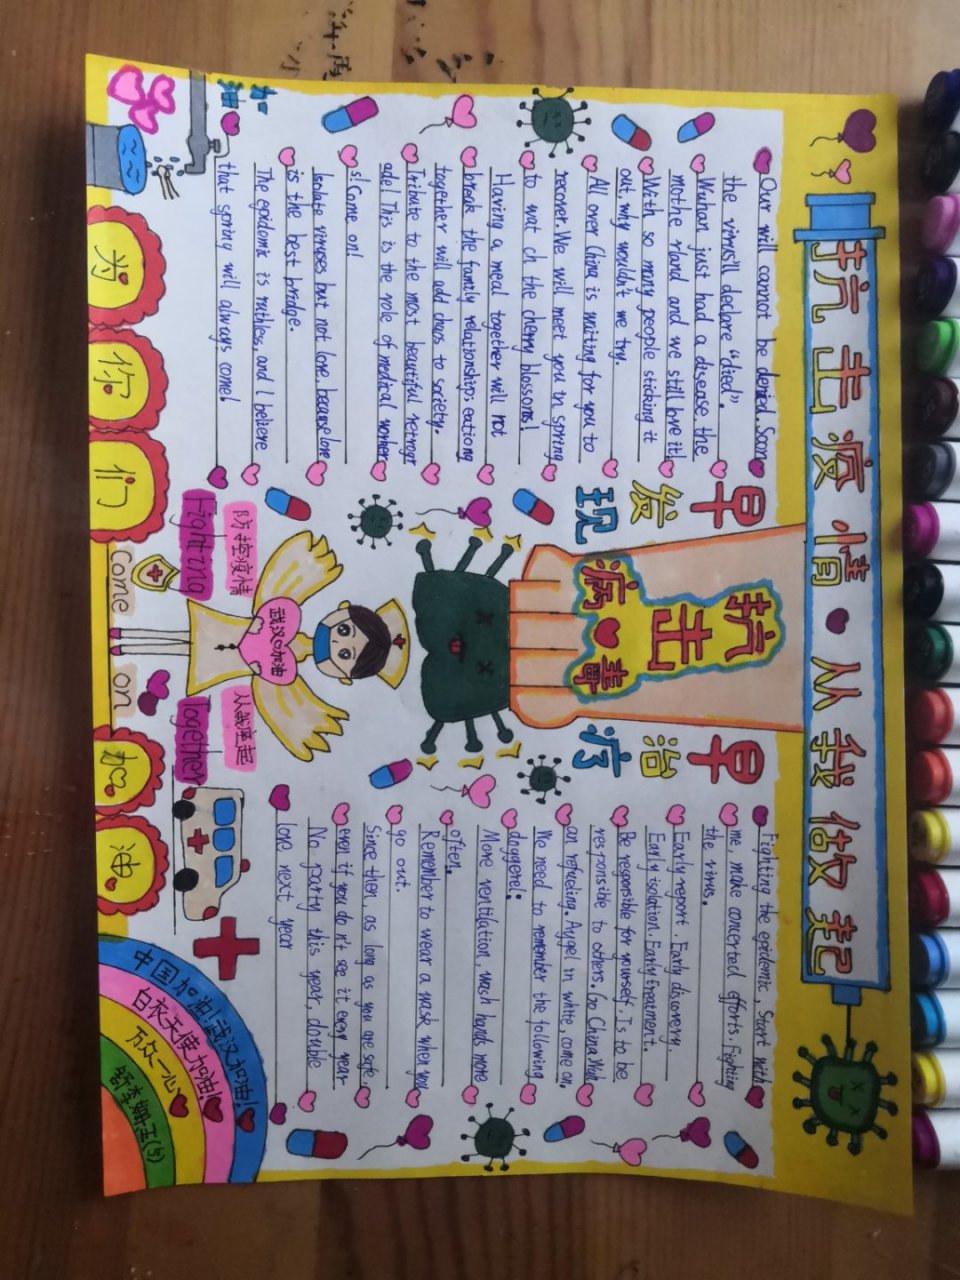 抗击疫情从我做起
加油
Our will cannot be denied. Soon
the virus'll declare "died".
Wuhan just had a disease, the
mothe rland and we still love it!
With so many people sticking it
out, why wouldn't we try.
All over China is waiting for you to
recover. We will meet you in spring
to wat ch the cherry blossoms!
Having a meal together will not
break the family relationship; eationg
together will add chaos to society.
Tribute to the most beautiful retrogr
ade! This is the role of medical worker
s! Come on!
Isolate viruses but not love, because love
is the best bridge.
The epidemic is ruthless, and I believe
that spring will always come!
早发现
抗击病毒
早治疗
武汉加油
防控疫情
从我做起
Fighting
Together
Come on
Fighting the epidemic, Start with
me, make concerted efforts. Fighting
the virus.
Early report. Early discovery.
Early isolation. Early treatment.
Be responsible for yourself, Is to be
responsible to others. Go China Wuh
an refueling. Aygel in white, come on.
We need to remember the following
doggerel:
More ventilation, wach hands more
often.
Remember to wear a mask when you
go out.
Since then, as long as you are safe,
even if you do n't see it every year
No party this year, double
love next year
为你们加油
中国加油!武汉加油!
白衣天使加油!
万众一心